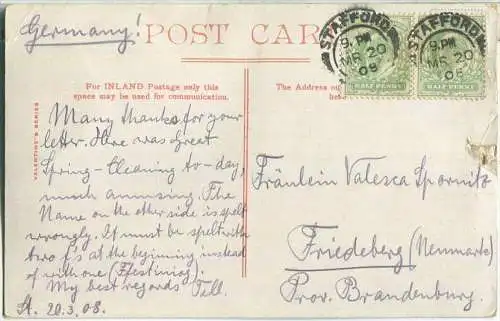 Germany!
POST CARD
STAFFORD
9. PM
MR 20
08
STAFFORD
9. PM
MR 20
08
HALF PENNY
HALF PENNY
For INLAND Postage only this
space may be used for communication.
The Address
here
VALENTINE'S SERIES
Many thanks for your
letter. Here was great
Spring-Cleaning to-day,
much amusing. The
Name on the other side is spelt
wrongly. It must be spelt with
two f's at the beginning instead
of with one (Ffestiniog).
My best regards Till.
St. 20.3.08.
Fräulein Valesca Spornitz
Friedeberg (Neumark)
Prov. Brandenburg.